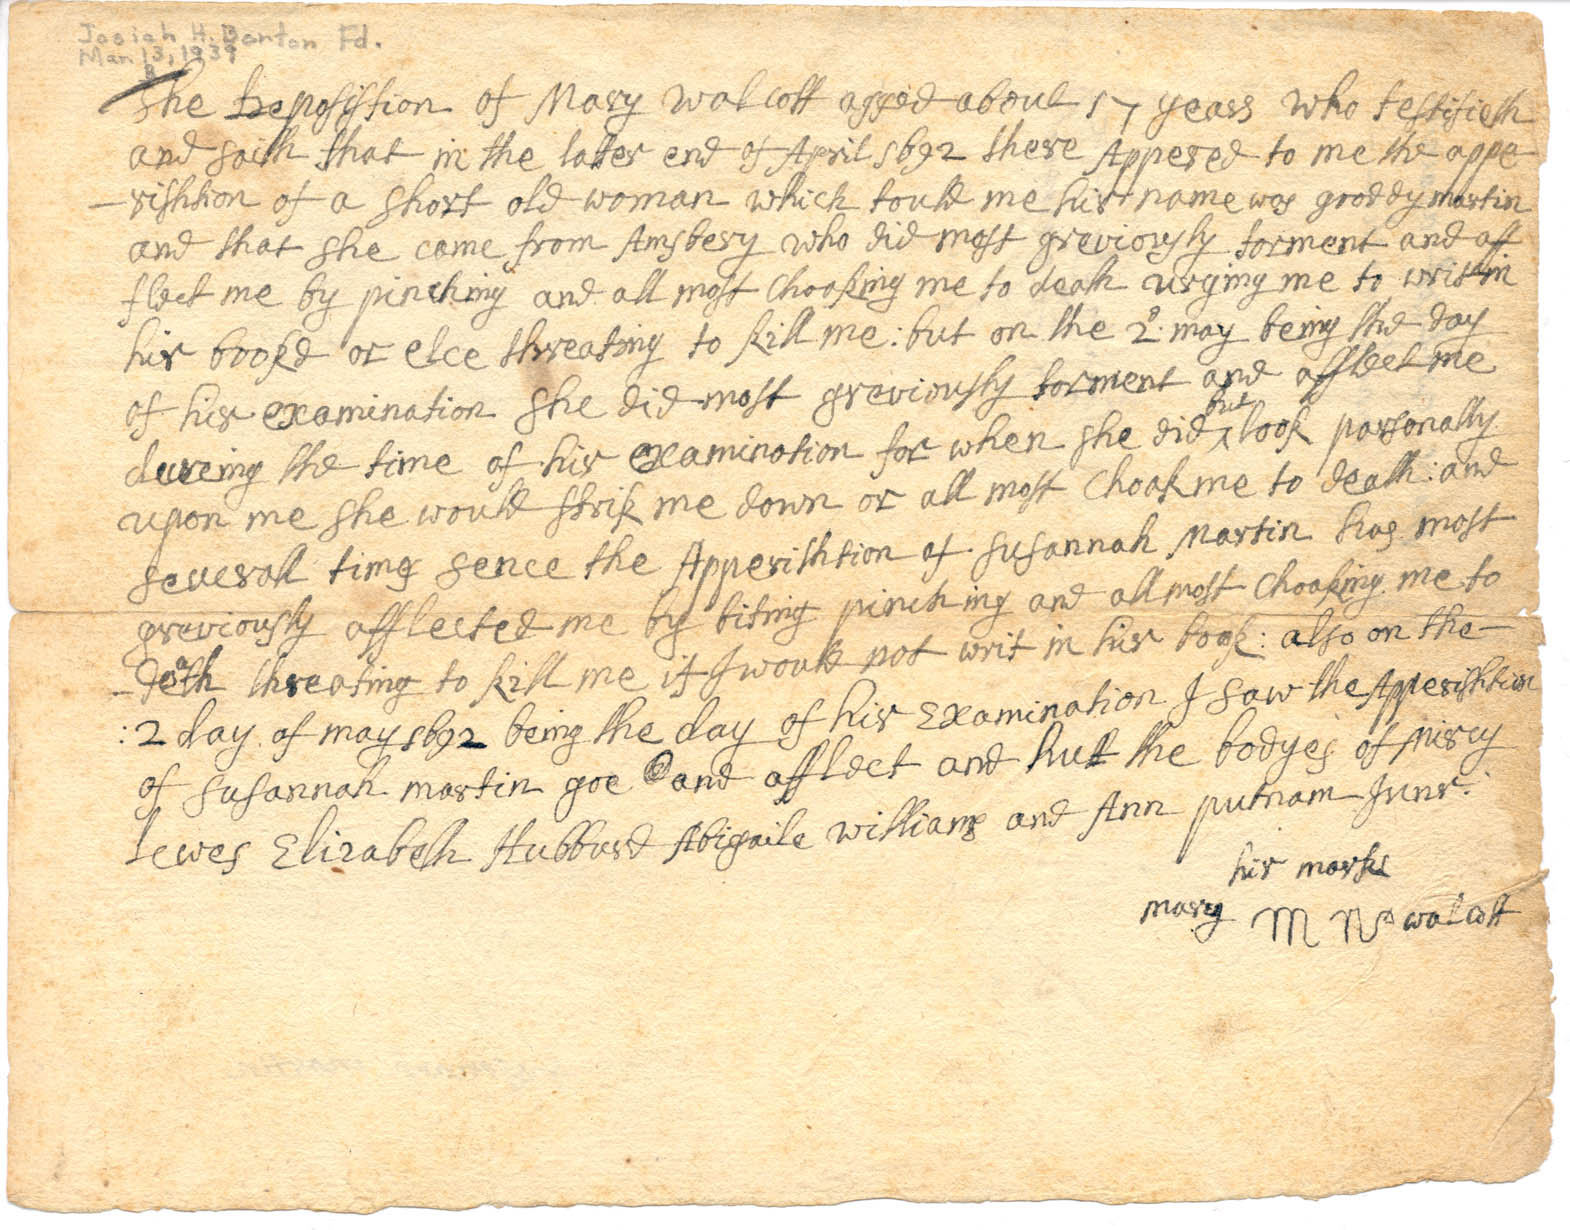 Josiah H. Benton Fd.
Mar 13, 1939
B
The Deposistion of Mary Walcott agged about 17 years who testifieth
and saith that in the latter end of April 1692 there Appered to me the appe-
-rishtion of a short old woman which tould me hir name was gooddy martin
and that she came from Amsbery who did most greviously torment and aff
flect me by pinching and all most Choaking me to death urging me to writ in
hir book or elce threating to kill me: but on the 2º. may being the day
of hir examination she did most greviously torment and afflect me
dureing the time of hir examination for when she did but look parsonally
upon me she would strik me down or all most Choak me to death: and
severall times sence the Apperishtion of Susannah Martin has most
greviously afflected me by biting pinching and allmost Choaking me to
death threating to kill me if I would not writ in hir book: also on the
:2 day of may 1692 being the day of hir Examination I saw the Apperishtion
of Susannah martin goe and afflect and hurt the bodyes of Mircy
lewes Elizabeth Hubburd Abigaile williams and Ann putnam Junr.
hir marke
mary M walcott